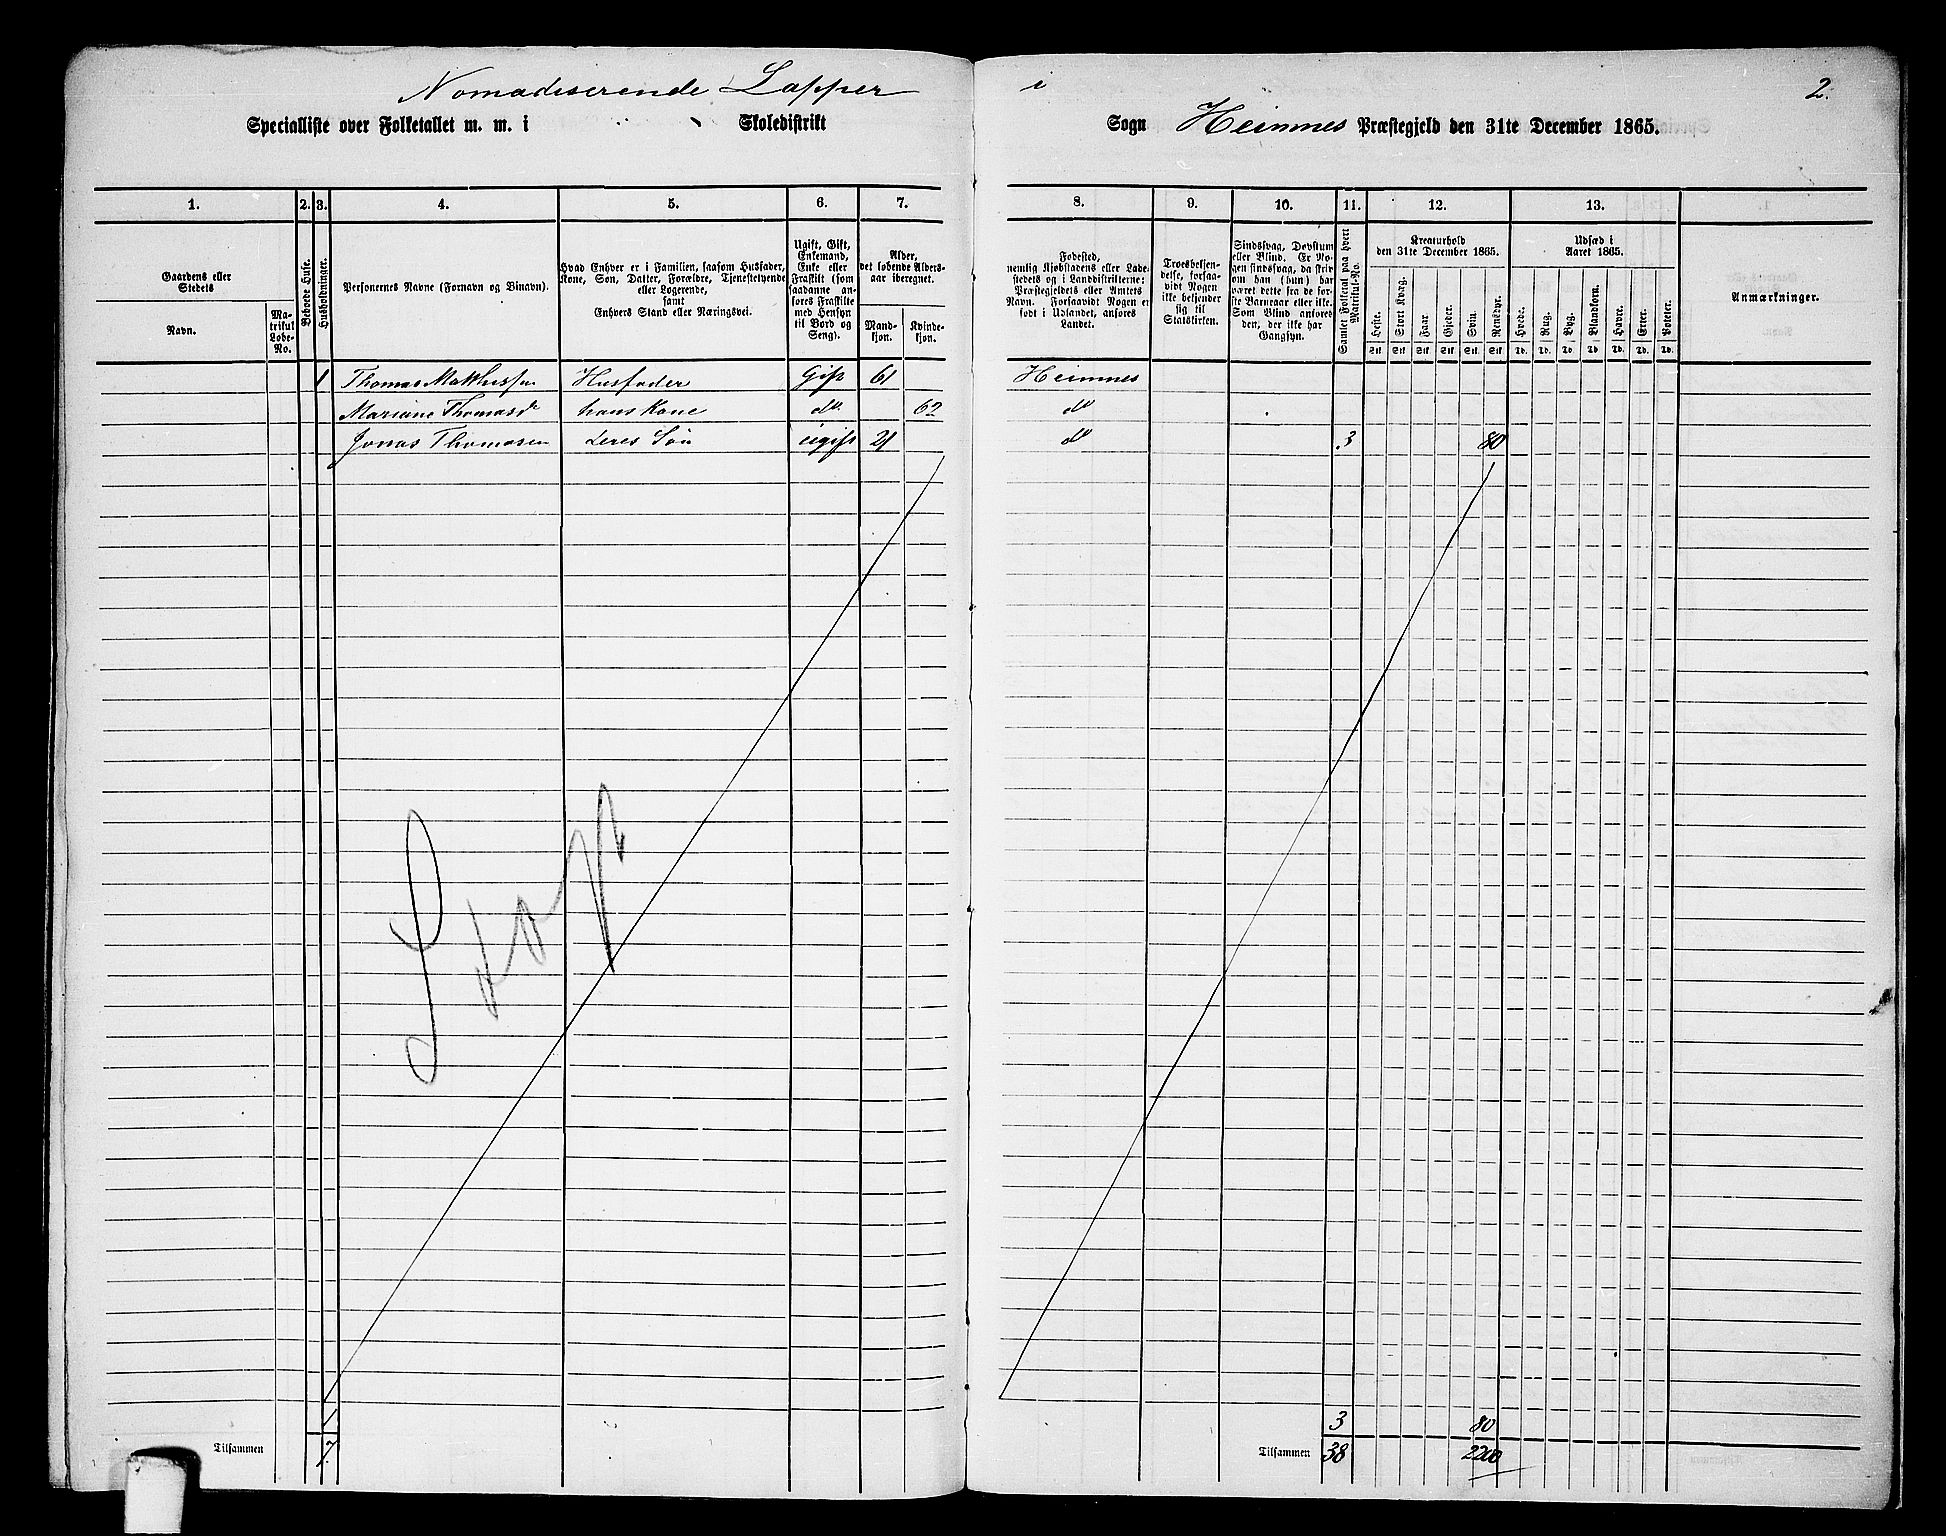 Nomadiserende Lapper i 2.
Specialliste over Folketallet m. m. i Skoledistrikt Sogn Heimnes Præstegjeld den 31te December 1865.
1. 2. 3. 4. 5. 6. 7. 8. 9. 10. 11. 12. 13.
Gaardens eller Stedets
Navn.
Matrikul Løbe-No.
Beboede Huse.
Husholdninger.
Personernes Navne (Fornavn og Binavn).
Hvad Enhver er i Familien, saasom Husfader, Kone, Søn, Datter, Forældre, Tjenestetyende eller Logerende,
samt
Enhvers Stand eller Næringsvei.
Ugift, Gift, Enkemand, Enke eller Fraskilt (som saadanne anføres Fraskilte med Hensyn til Bord og Seng).
Alder, det løbende Alders-aar iberegnet.
Mand-kjøn.
Kvinde-kjøn.
Fødested, nemlig Kjøbstadens eller Ladestedets og i Landdistrikterne: Præstegjeldets eller Amtets Navn. Forsaavidt Nogen er født i Udlandet, anføres Landet.
Troesbekjendelse, forsaavidt Nogen ikke bekjender sig til Statskirken.
Sindssvag, Døvstum eller Blind. Er Nogen sindssvag, da skriv om han (hun) har været dette fra de første Barneaar eller ikke. Som Blind anføres den, der ikke har Gangsyn.
Samlet Folketal paa hvert Matrikul-No.
Kreaturhold
den 31te December 1865.
Heste. Stort Kvæg. Faar Gjeder. Svin. Rensdyr.
Stk Stk Stk Stk Stk Stk
Udsæd i
Aaret 1865.
Hvede. Rug. Byg. Blandkorn. Havre. Erter. Poteter.
Td. Td. Td. Td Td. Td. Td.
Anmærkninger.
1 Thomas Mathissen Husfader Gift 61 Heimnes
Mariane Thomasd hans Kone do 62 do
Jonas Thomasen deres Søn ugift 21 do 3 80
Lapp
1 3 80
Tilsammen 7 Tilsammen 38 2200